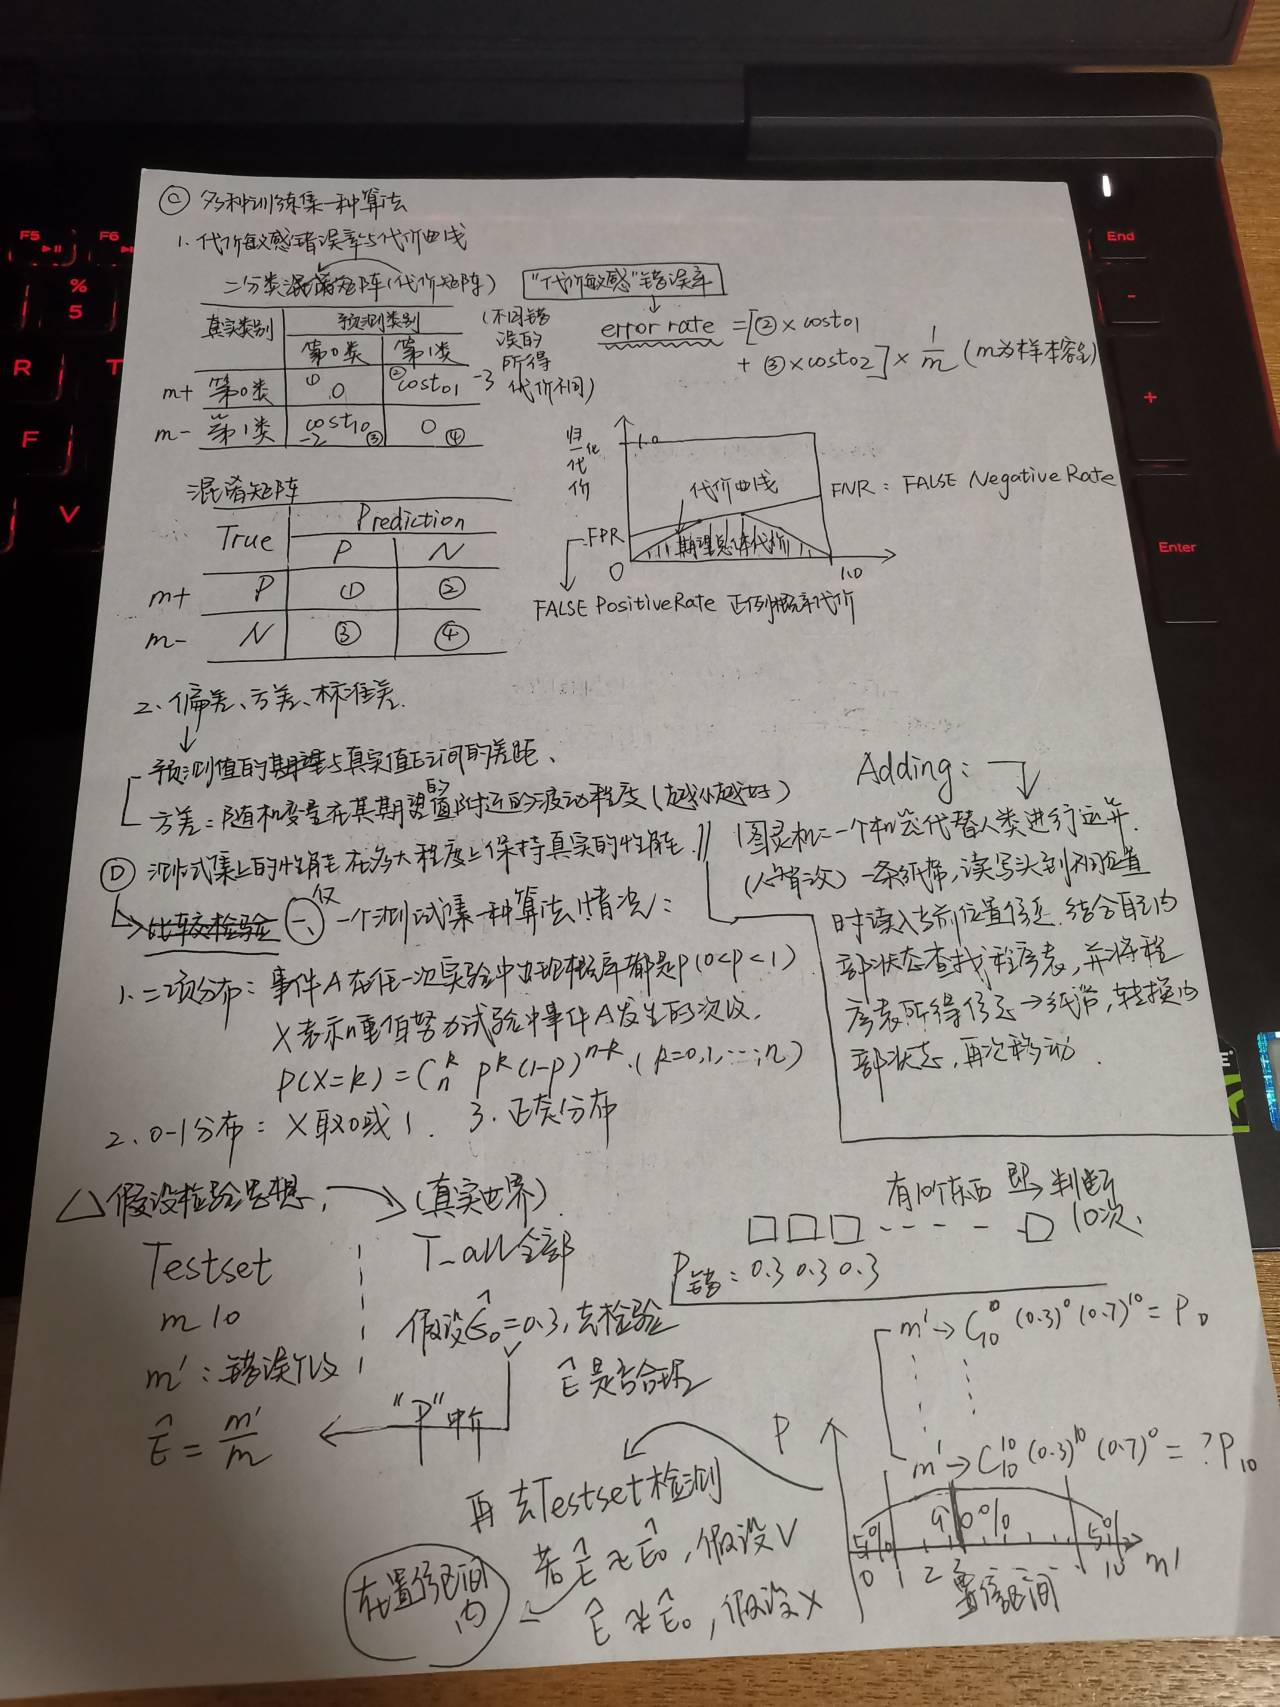 Ⓒ 多种训练集一种算法
1. 代价敏感错误率与代价曲线
二分类混淆矩阵(代价矩阵)
真实类别 预测类别
第0类 第1类
m+ 第0类 ① 0 ② cost01 -3
m- 第1类 cost10 -2 ③ 0 ④
(不同错
误的
所得
代价不同)
"代价敏感"错误率
error rate = [② × cost01
+ ③ × cost02] × 1/m (m为样本容量)
混淆矩阵
True Prediction
P N
m+ P ① ②
m- N ③ ④
归一化代价
1.0
代价曲线
FNR : FALSE Negative Rate
FPR
期望总体代价
0 1.0
FALSE Positive Rate 正例概率代价
2. 偏差、方差、标准差.
预测值的期望与真实值之间的差距、
方差: 随机变量在其期望的置附近的波动程度(越小越好)
Ⓓ 测试集上的性能在多大程度上保持真实的性能. //
比较检验 一、仅一个测试集一种算法情况:
1. 二项分布: 事件A在任一次实验中出现概率都是p(0<p<1)
X表示n重伯努力试验中事件A发生的次数.
P(X=k) = C_n^k p^k (1-p)^{n-k}. (k=0,1,…,n)
2. 0-1分布: X取0或1. 3. 正态分布
Adding:
图灵机: 一个机器代替人类进行运算.
一条纸带, 读写头到不同位置
时读入当前位置信息. 结合自己内
部状态查找程序表, 并将程
序表所得信息→纸带, 转换内
部状态, 再次移动.
△假设检验思想. (真实世界)
Testset T_all全部
m 10
m' : 错误个数
Ê = m'/m
假设Ê₀=0.3, 去检验
Ê是否合理
"P"中介
有10个东西 即→判断
10次.
□ □ □ - - - - □
P错: 0.3 0.3 0.3
m' → C_10^0 (0.3)^0 (0.7)^10 = P0
m' → C_10^10 (0.3)^10 (0.7)^0 = ? P10
再去Testset检测
若 Ê ≈ Ê₀, 假设√
Ê ≉ Ê₀, 假设×
在置信区间
内
P
5% 90% 5%
0 1 2 3 10 m'
置信区间
F5
F6
%
5
R
T
F
V
End
-
+
Enter